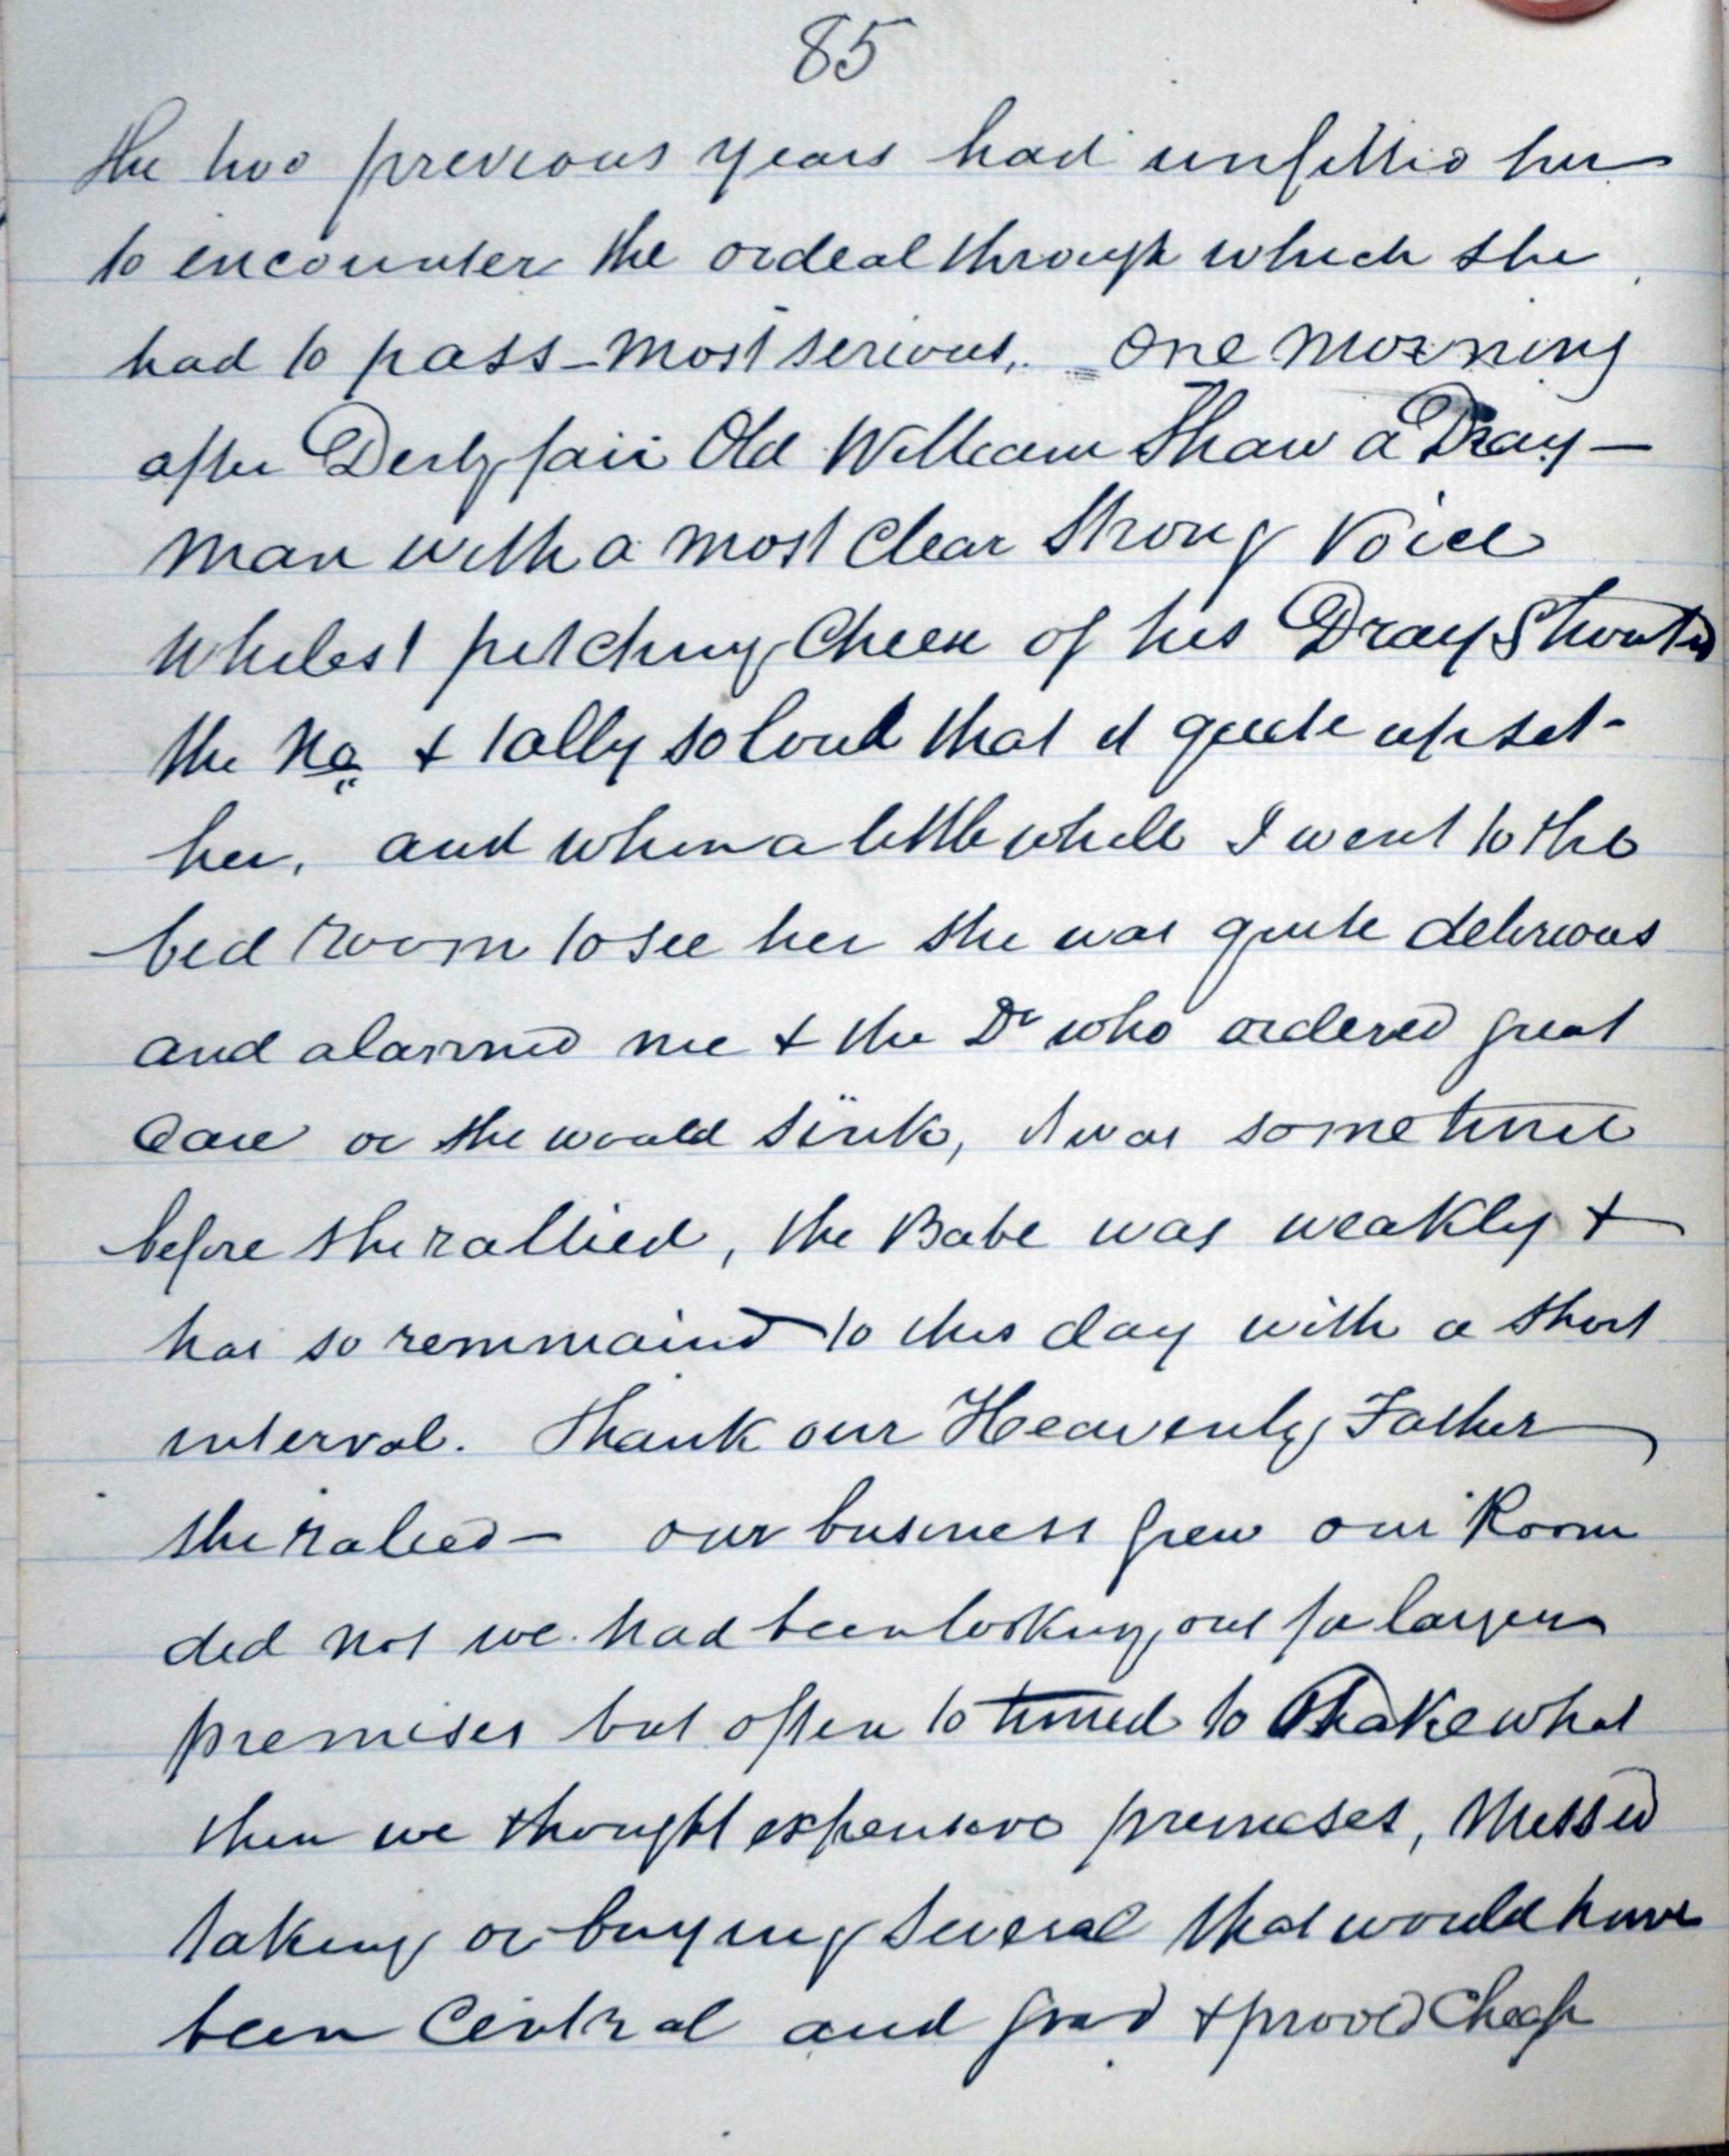 85
the two previous years had unfitted her
to encounter the ordeal through which she
had to pass - most serious,. One morning
after Derby fair Old William Shaw a Dray-
man with a most Clear Strong Voice
Whilest pitching Cheese of his Dray Shouted
the No & tally so loud that it quite upset
her, and when a little while I went to the
bed room to see her she was quite delirious
and alarmed me & the Dr who ordered great
Care or she would sink, it was sometime
before she rallied, the Babe was weakly &
has so remmained to this day with a short
interval. Thank our Heavenly Father
she ralied - our business grew our Room
did not we had been looking out for larger
premises but often to timed to take what
then we thought expensive premises, Missed
taking or buying several that would have
been Central and good & proved Cheap